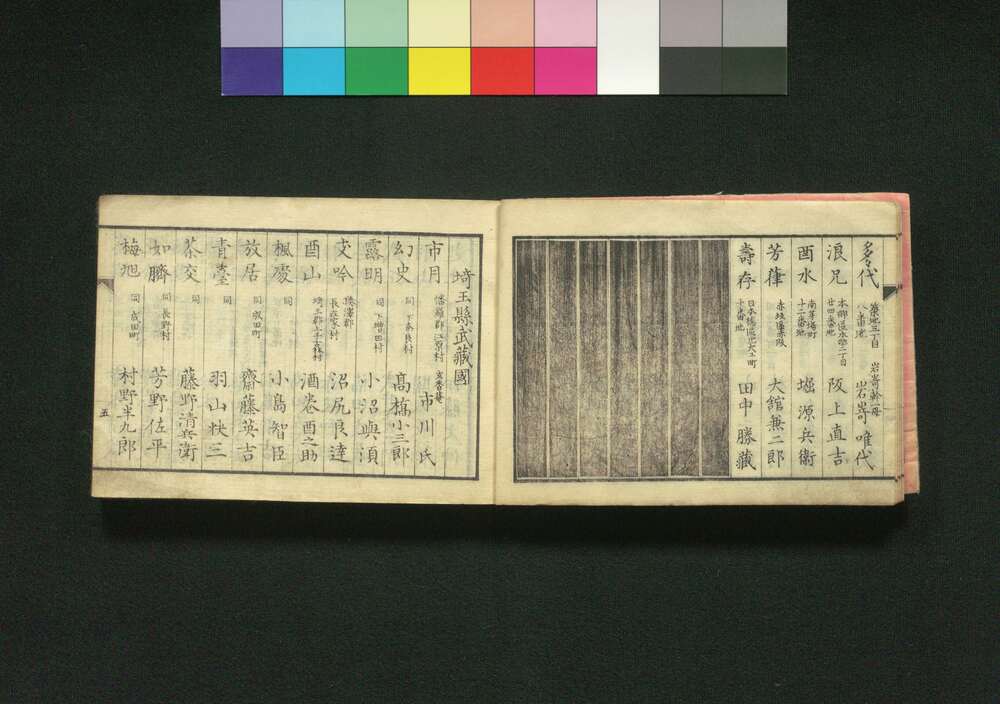 多代 築地三丁目 岩嵜幹一母 岩嵜唯代
浪兄 本郷區 二丁目廿四番地 阪上直吉
酉水 南茅場町十二番地 堀源兵衞
芳葎 赤坂 大舘兼二郎
壽存 日本橋區北大工町十番地 田中勝藏
埼玉縣武藏國
市月 幡羅郡 村 市川氏
幻史 同 下奈良村 髙橋小三郎
露明 同 下増田村 小沼與須
文吟 榛澤郡長在家村 沼尻良達
酉山 埼玉郡上之村 酒卷酉之助
楓慶 同 小島智臣
放居 同 成田町 齋藤英吉
青臺 同 羽山快三
茶交 同 藤野清兵衛
如臍 同 長野村 芳野佐平
梅旭 同 成田町 村野半九郎
五